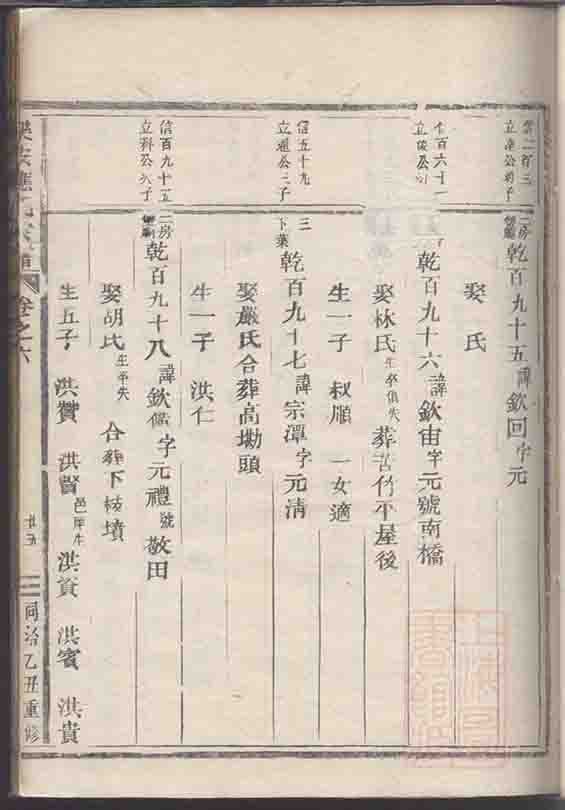 立準公
二房
乾百九十五諱欽回字元
娶氏
百六十一
立俊公
乾百九十六諱欽宙字元號南橋
娶林氏生卒俱失 葬苦竹平屋後
生一子 叔願 一女適
信五十九
立通公三子
三
下葉
乾百九十七諱宗潭字元清
娶嚴氏合葬高墈頭
生一子 洪仁
信百九十五
立科公次子
二房
乾百九十八諱欽 字元禮號敬田
娶胡氏生卒失 合葬下枝墳
生五子 洪贊 洪賢邑庠生 洪資 洪賓 洪貴
卷之六
廿五
同治乙丑重修
上海圖書館藏